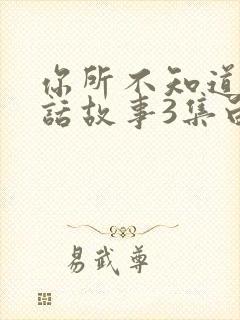 你所不知道
話故事3集
易武尊